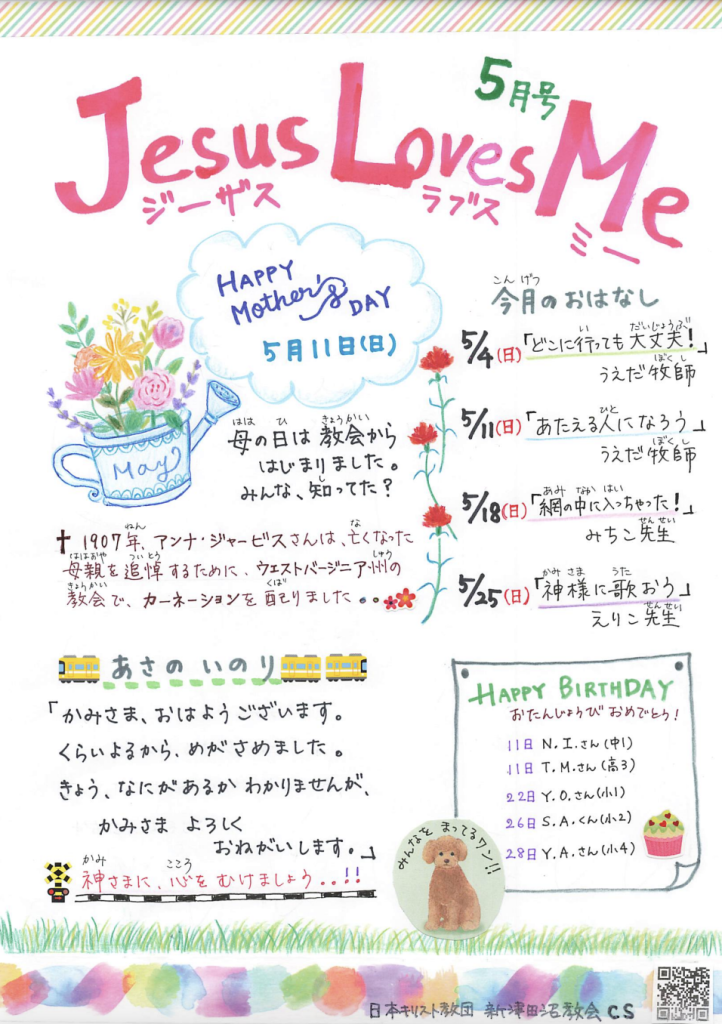 5月号
Jesus Loves Me
ジーザス ラブス ミー
HAPPY
Mother's DAY
5月11日(日)
May
母の日は教会から
はじまりました。
みんな、知ってた?
✝ 1907年、アンナ・ジャービスさんは、亡くなった
母親を追悼するために、ウエストバージニア州の
教会で、カーネーションを配りました..
今月のおはなし
5/4(日)「どこに行っても大丈夫!」
うえだ牧師
5/11(日)「あたえる人になろう」
うえだ牧師
5/18(日)「網の中に入っちゃった!」
みちこ先生
5/25(日)「神様に歌おう」
えりこ先生
あさの いのり
「かみさま、おはようございます。
くらいよるから、めがさめました。
きょう、なにがあるか わかりませんが、
かみさま よろしく
おねがいします。」
神さまに、心を むけましょう..!!
HAPPY BIRTHDAY
おたんじょうび おめでとう!
11日 N.I.さん(中1)
11日 T.M.さん(高3)
22日 Y.O.さん(小1)
26日 S.A.くん(小2)
28日 Y.A.さん(小4)
みんなを まってるワン!!
日本キリスト教団 新津田沼教会 CS